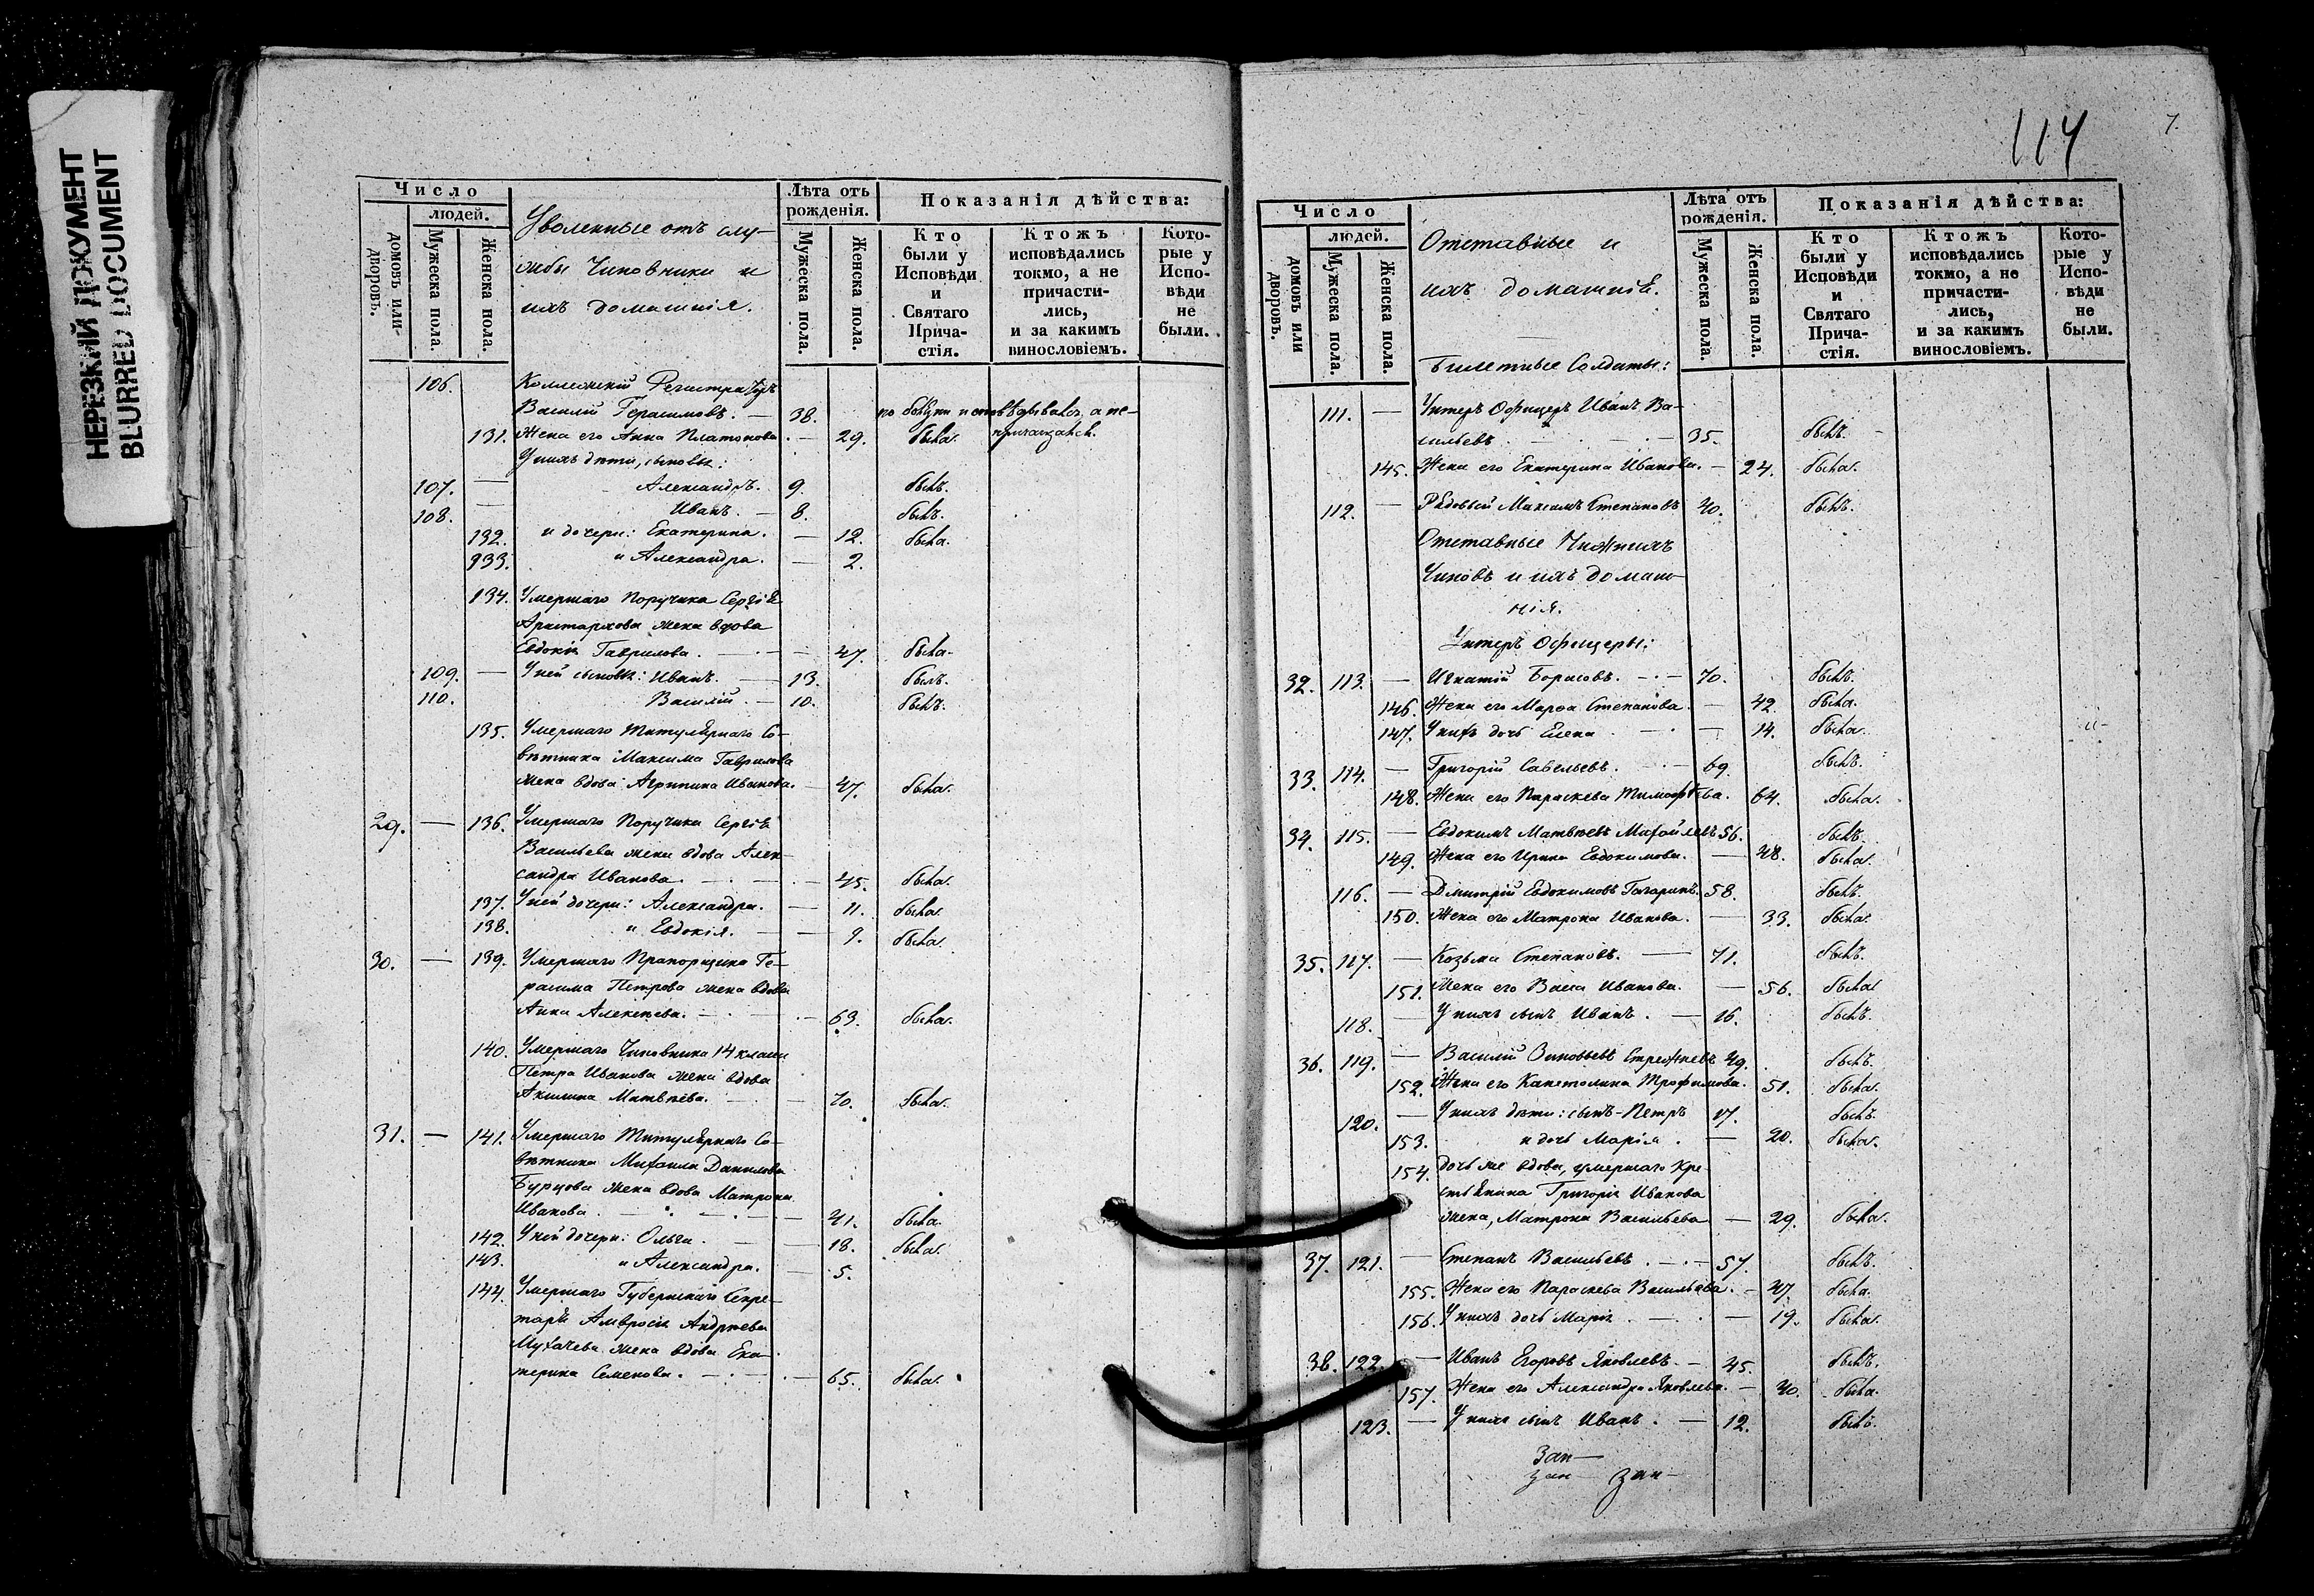 НЕРЕЗКИЙ ДОКУМЕНТ
BLURRED DOCUMENT
Число
людей.
домовъ или дворовъ.
Мужеска пола.
Женска пола.
Уволенные отъ слу-
жбы Чиновники и
ихъ домашнія.
Лѣта отъ рожденія.
Мужеска пола.
Женска пола.
Показанія дѣйства:
Кто были у Исповѣди и Святаго Прича-стія.
Ктожъ исповѣдались токмо, а не причасти-лись, и за какимъ винословіемъ.
Кото-рые у Испо-вѣди не были.
106. Коллежскій Регистраторъ
Василій Герасимовъ. — 38. а не-
131. Жена его Анна Платонова. — 29. была.
У нихъ дѣти, сыновья:
107. — Александръ. 9. былъ.
108. — Иванъ. — 8. былъ.
132. и дочери: Екатерина. — 12. была.
933. и Александра. — 2.
134. Умершаго Поручика Сергія
Аристархова жена вдова
Евдокія Гаврилова. — 47. была.
109. — У ней сыновья: Иванъ. — 13. былъ.
110. Василій. — 10. былъ.
135. Умершаго Титулярнаго Со-
вѣтника Максима Гаврилова
жена вдова Агрипина Иванова. — 47. была.
29. — 136. Умершаго Поручика Сергія
Васильева жена вдова Алек-
сандра Иванова. — 45. была.
137. У ней дочери: Александра. — 11. была.
138. и Евдокія. — 9. была.
30. — 139. Умершаго Прапорщика Ге-
расима Петрова жена вдова
Анна Алексѣева. — 63. была.
140. Умершаго Чиновника 14 класса
Петра Иванова жена вдова
Акилина Матвѣева. — 70. была.
31. — 141. Умершаго Титулярнаго Со-
вѣтника Михаила Данилова
Бурцова жена вдова Матрона
Иванова. — 41. была.
142. У ней дочери: Ольга. — 18. была.
143. и Александра. — 5.
144. Умершаго Губернскаго Секре-
таря Амвросія Андреева
Мухачева жена вдова Ека-
терина Семенова. — 65. была.
114
7.
Число
людей.
домовъ или дворовъ.
Мужеска пола.
Женска пола.
Отставные и
ихъ домашніе.
Лѣта отъ рожденія.
Мужеска пола.
Женска пола.
Показанія дѣйства:
Кто были у Исповѣди и Святаго Прича-стія.
Ктожъ исповѣдались токмо, а не причасти-лись, и за какимъ винословіемъ.
Кото-рые у Испо-вѣди не были.
Билетные Солдаты:
111. — Унтеръ Офицеръ Иванъ Ва-
сильевъ — 35. былъ.
145. Жена его Екатерина Иванова. — 24. была.
112. — Рядовый Максимъ Степановъ 40. былъ.
Отставные Нижнихъ
Чиновъ и ихъ домаш-
нія.
Унтеръ Офицеры:
32. 113. — Игнатій Борисовъ. — 70. былъ.
146. Жена его Марѳа Степанова. — 42. была.
147. У нихъ дочь Елена — 14. была.
33. 114. — Григорій Савельевъ. — 69. былъ.
148. Жена его Параскева Тимофѣева. 64. была.
34. 115. — Евдокимъ Матвѣевъ Михайловъ 56. былъ.
149. Жена его Ирина Евдокимова. — 48. была.
116. — Дмитрій Евдокимовъ Гагаринъ. 58. былъ.
150. Жена его Матрона Иванова. — 33. была.
35. 117. — Козьма Степановъ. — 71. былъ.
151. Жена его Васса Иванова. — 56. была.
118. — У нихъ сынъ Иванъ. — 16. былъ.
36. 119. — Василій Зиновьевъ 49. былъ.
152. Жена его Капетолина Трофимова. 51. была.
120. — У нихъ дѣти: сынъ-Петръ 17. былъ.
153. и дочь Марія. — 20. была.
154. дочь же вдова, умершаго Кре-
стьянина Григорія Иванова
жена, Матрона Васильева — 29. была.
37. 121. — Степанъ Васильевъ. — 57. былъ.
155. Жена его Параскева Васильева. — 47. была.
156. У нихъ дочь Марія. — 19. была.
38. 122. — Иванъ Егоровъ Яковлевъ. — 45. былъ.
157. Жена его Александра Яковлева. — 40. была.
123. — У нихъ сынъ Иванъ. — 12. былъ.